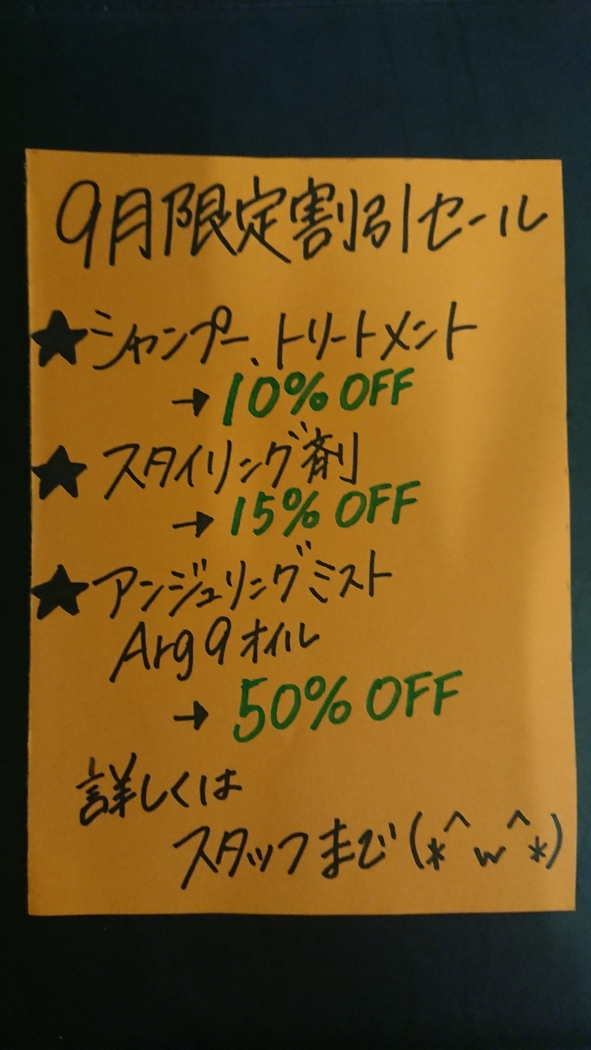 9月限定割引セール
★シャンプー、トリートメント
→10%OFF
★スタイリング剤
→15%OFF
★アンジュリングミスト
Arg9オイル
→50%OFF
詳しくは
スタッフまで(*^w^*)